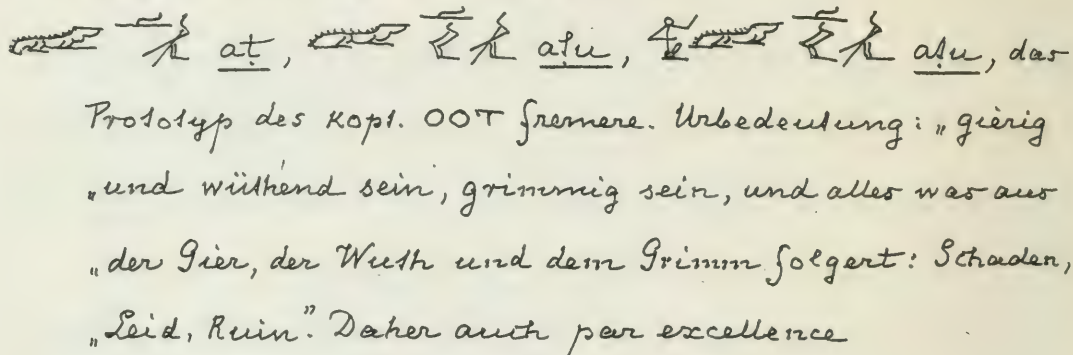 aṭ, aṭu, aṭu, das
Prototyp des kopt. ⲞⲞⲦ fremere. Urbedeutung: „gierig
„und wüthend sein, grimmig sein, und alles was aus
„der Gier, der Wuth und dem Grimm folgert: Schaden,
„Leid, Ruin”. Daher auch par excellence